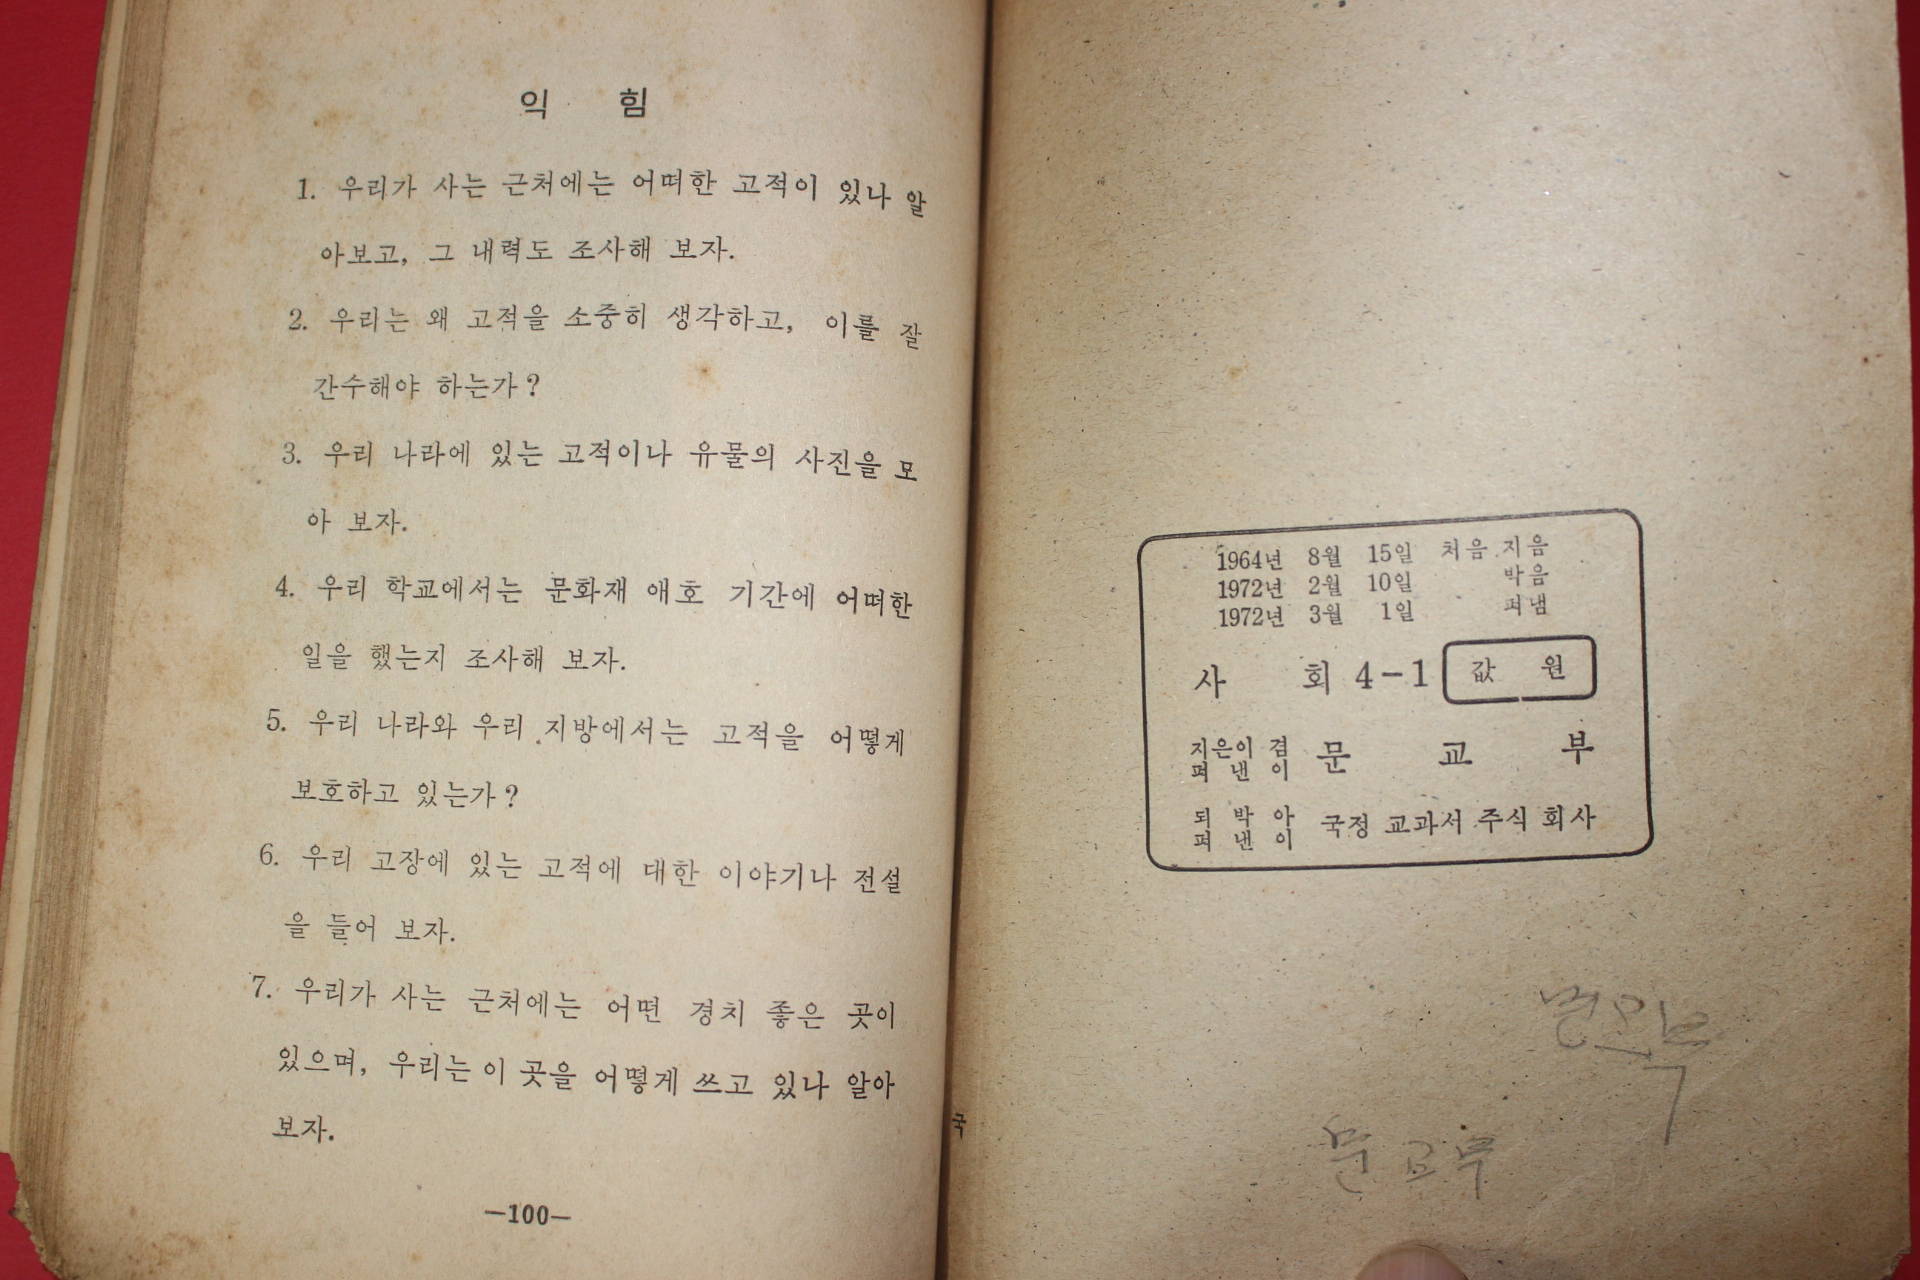 익 힘
1. 우리가 사는 근처에는 어떠한 고적이 있나 알
아보고, 그 내력도 조사해 보자.
2. 우리는 왜 고적을 소중히 생각하고, 이를 잘
간수해야 하는가?
3. 우리 나라에 있는 고적이나 유물의 사진을 모
아 보자.
4. 우리 학교에서는 문화재 애호 기간에 어떠한
일을 했는지 조사해 보자.
5. 우리 나라와 우리 지방에서는 고적을 어떻게
보호하고 있는가?
6. 우리 고장에 있는 고적에 대한 이야기나 전설
을 들어 보자.
7. 우리가 사는 근처에는 어떤 경치 좋은 곳이
있으며, 우리는 이 곳을 어떻게 쓰고 있나 알아
보자.
—100—
국
1964년 8월 15일 처음 지음
1972년 2월 10일 박음
1972년 3월 1일 펴냄
사 회 4-1 값 원
지은이 겸
펴 낸 이
문 교 부
되 박 아
펴 낸 이
국정 교과서 주식 회사
문교부